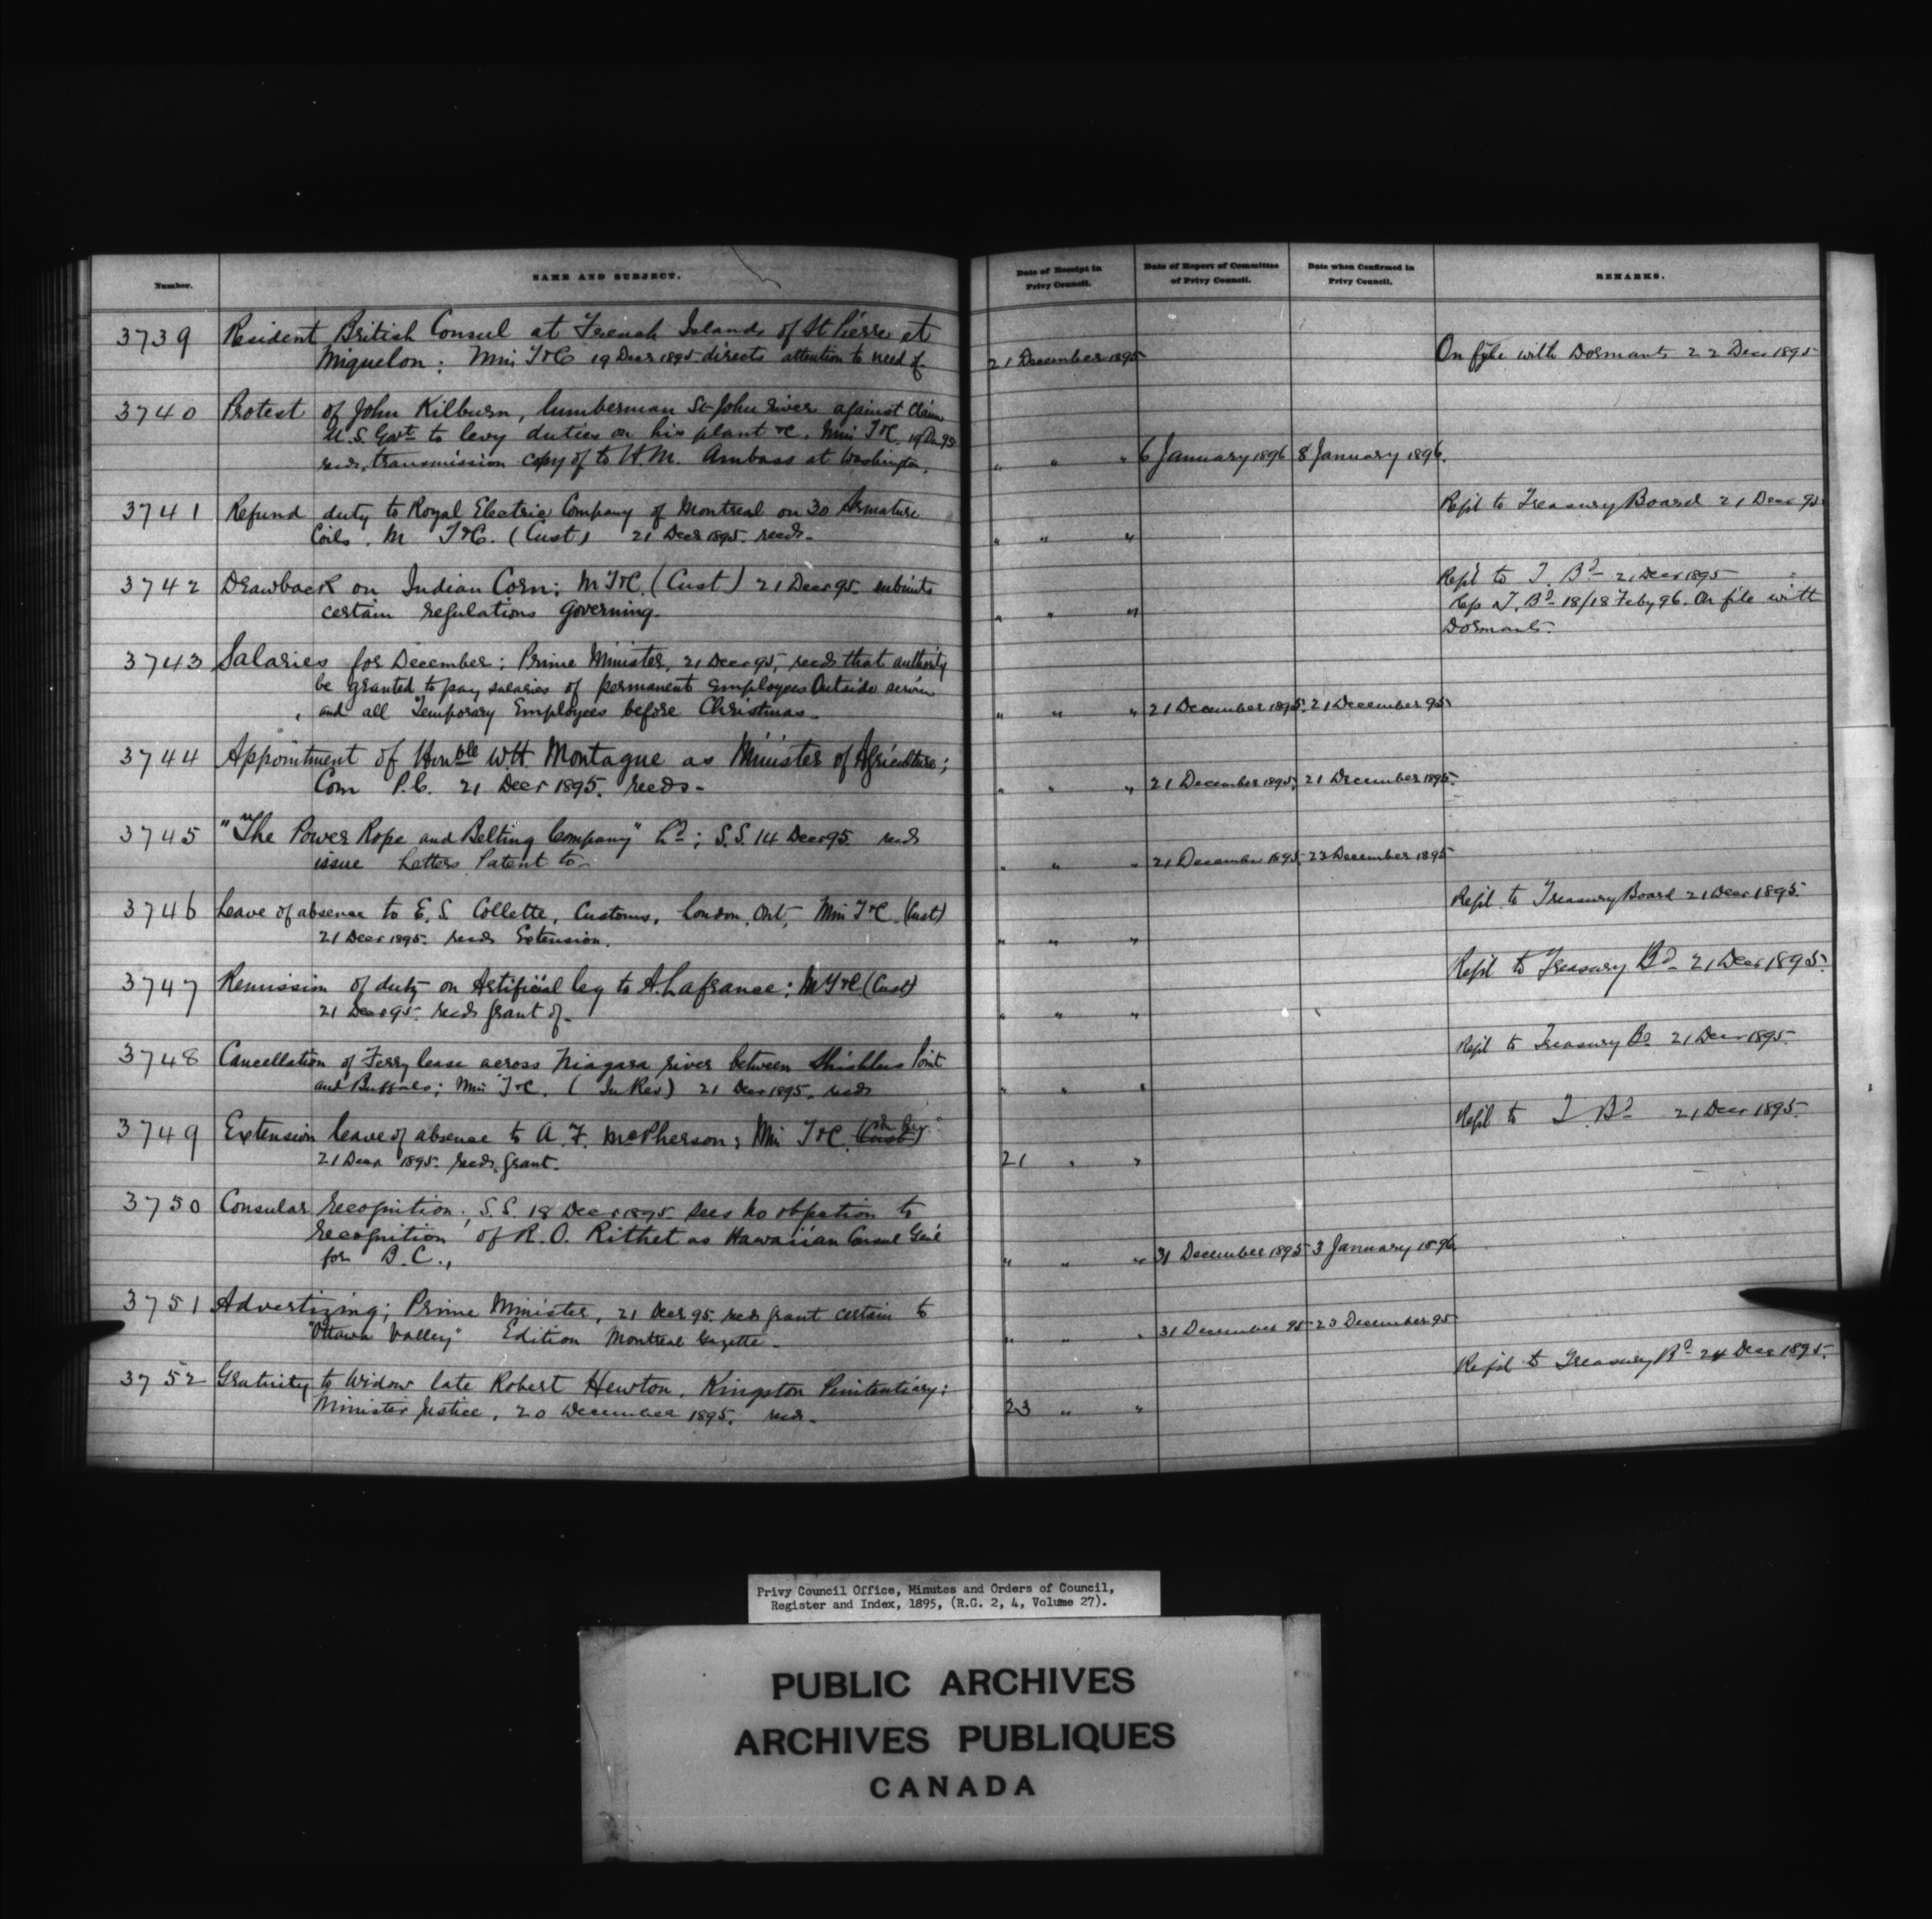 Number.
NAME AND SUBJECT.
Date of Receipt in Privy Council.
Date of Report of Committee of Privy Council.
Date when Confirmed in Privy Council.
REMARKS.
3739 Resident British Consul at French Islands of St Pierre et
Miquelon: Mini T&C 19 Decr 1895 directs attention to need of
21 December 1895
On fyle with Dormants 22 Decr 1895
3740 Protest of John Kilburn, lumberman St John river against claim
U.S. Govt to levy duties on his plant &c. Mini T&C. 19 Dec 95
recds. transmission copy of to H.M. Ambass at Washington.
" " " 6 January 1896 8 January 1896.
3741 Refund duty to Royal Electric Company of Montreal on 30 Armature
Coils. M T&C. (Cust) 21 Decr 1895. recds.
" " "
Refd to Treasury Board 21 Decr 95
3742 Drawback on Indian Corn; M T&C. (Cust) 21 Decr 95. submits
certain regulations governing.
" " "
Refd to T. Bd 21 Decr 1895
Rep T. Bd 18/18 Feby 96. On file with
Dormants.
3743 Salaries for December: Prime Minister, 21 Decr 95, recds that authority
be granted to pay salaries of permanent employees Outside service
and all Temporary Employees before Christmas.
" " " 21 December 1895. 21 December 95
3744 Appointment of Honble W.H. Montague as Minister of Agriculture;
Com P.C. 21 Decr 1895. recds.
" " " 21 December 1895, 21 December 1895.
3745 "The Power Rope and Belting Company" Ld; S.S. 14 Decr 95 recds
issue Letters Patent to.
" " " 21 December 1895, 23 December 1895
3746 Leave of absence to E.S. Collette, Customs, London, Ont, Min T&C. (Cust)
21 Decr 1895. recds Extension.
" " "
Refd. to Treasury Board 21 Decr 1895.
3747 Remission of duty on Artificial leg to A. Lafrance; M T&C (Cust)
21 Decr 95. recds grant of.
" " "
Refd to Treasury Bd 21 Decr 1895.
3748 Cancellation of Ferry lease across Niagara river between Point
and Buffalo; Min T&C. (In Rev) 21 Decr 1895. recds
" " "
Refd to Treasury Bd 21 Decr 1895.
3749 Extension leave of absence to A. F. McPherson; Min T&C (Cust) In Rev.
21 Decr 1895. recds. grant.
21 " "
Refd to T. Bd 21 Decr 1895.
3750 Consular recognition; S.S. 18 Decr 1895. sees no objection to
recognition of R.O. Rithet as Hawaiian Consul Genl
for B.C.,
" " " 31 December 1895 3 January 1896.
3751 Advertizing; Prime Minister, 21 Decr 95. recds grant certain to
"Ottawa Valley" Edition Montreal Gazette.
" " " 31 December 95 23 December 95
3752 Gratuity to Widow late Robert Hewton, Kingston Penitentiary:
Minister Justice, 20 December 1895. recds.
23 " "
Refd to Treasury Bd 24 Decr 1895.
Privy Council Office, Minutes and Orders of Council,
Register and Index, 1895, (R.G. 2, 4, Volume 27).
PUBLIC ARCHIVES
ARCHIVES PUBLIQUES
CANADA